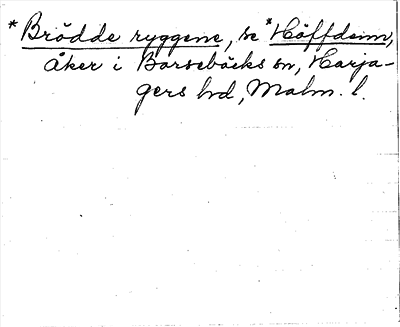 *Brödde ryggene, se *Höffdeim,
åker i Barsebäcks sn, Harja-
gers hd, Malm. l.